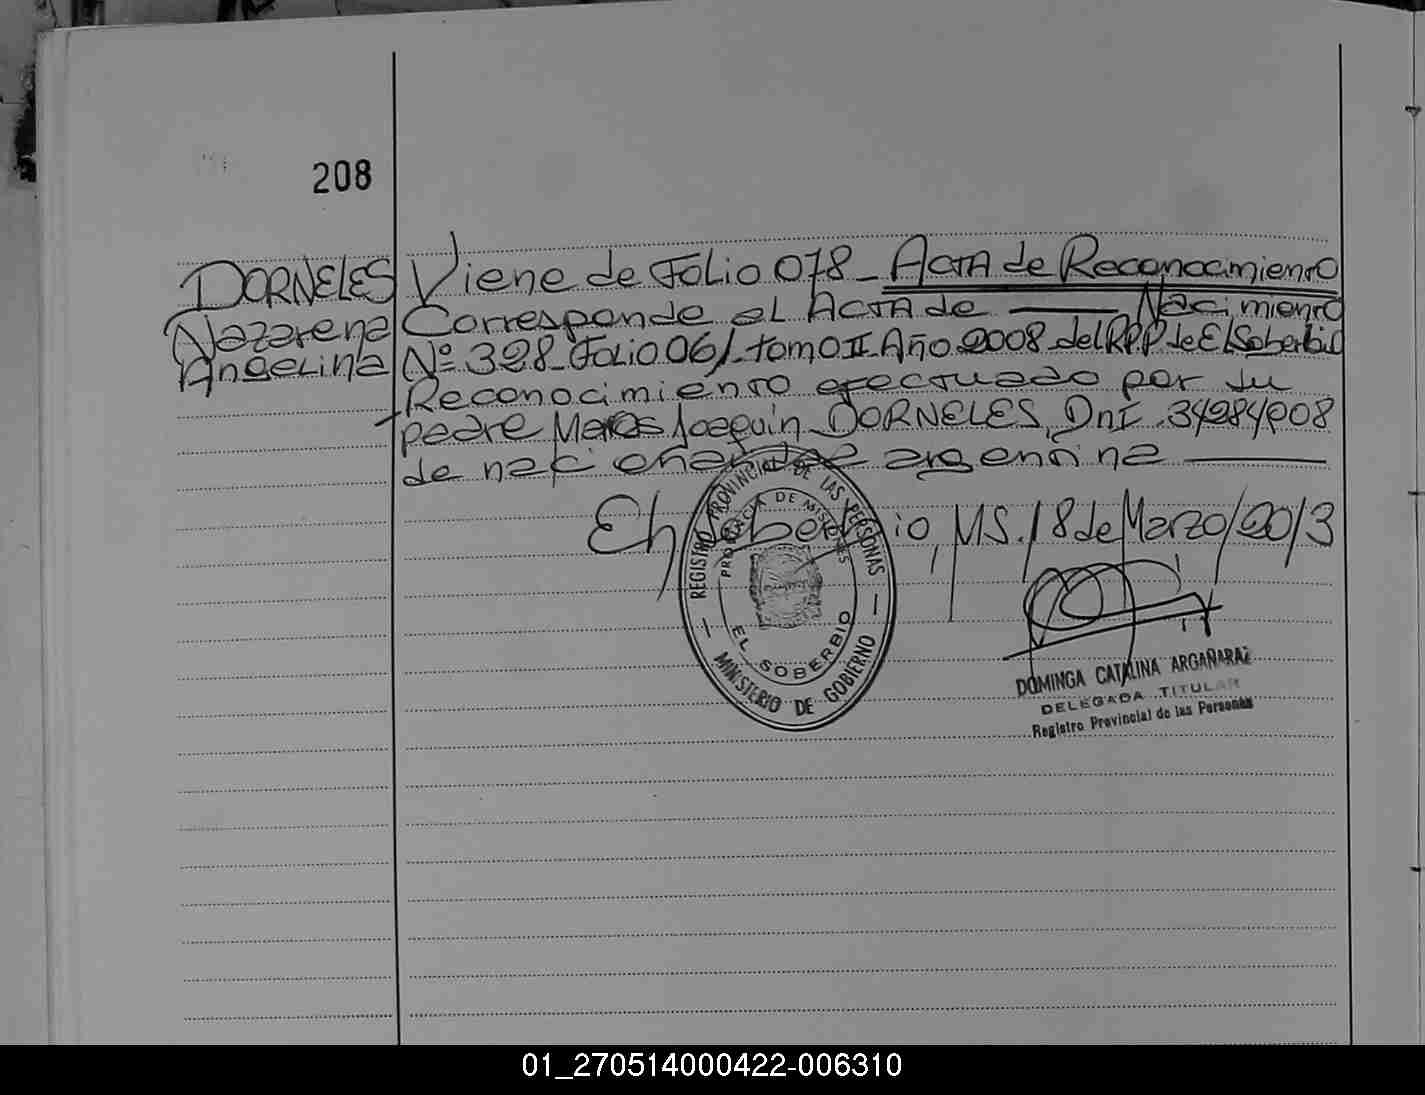 208
DORNELES
Nazarena
Angelina
Viene de Folio 078 - Acta de Reconocimiento
Corresponde al Acta de —— Nacimiento
Nº 328 Folio 061 tomo II Año 2008 del RPP de El Soberbio
Reconocimiento efectuado por su
padre Marcos Joaquín DORNELES, DnI. 34284908
de nacionalidad argentina ——
El Soberbio, MS. 18 de Marzo/2013
REGISTRO PROVINCIAL DE LAS PERSONAS
PROVINCIA DE MISIONES
EL SOBERBIO
— MINISTERIO DE GOBIERNO —
DOMINGA CATALINA ARGAÑARAZ
DELEGADA TITULAR
Registro Provincial de las Personas
01_270514000422-006310